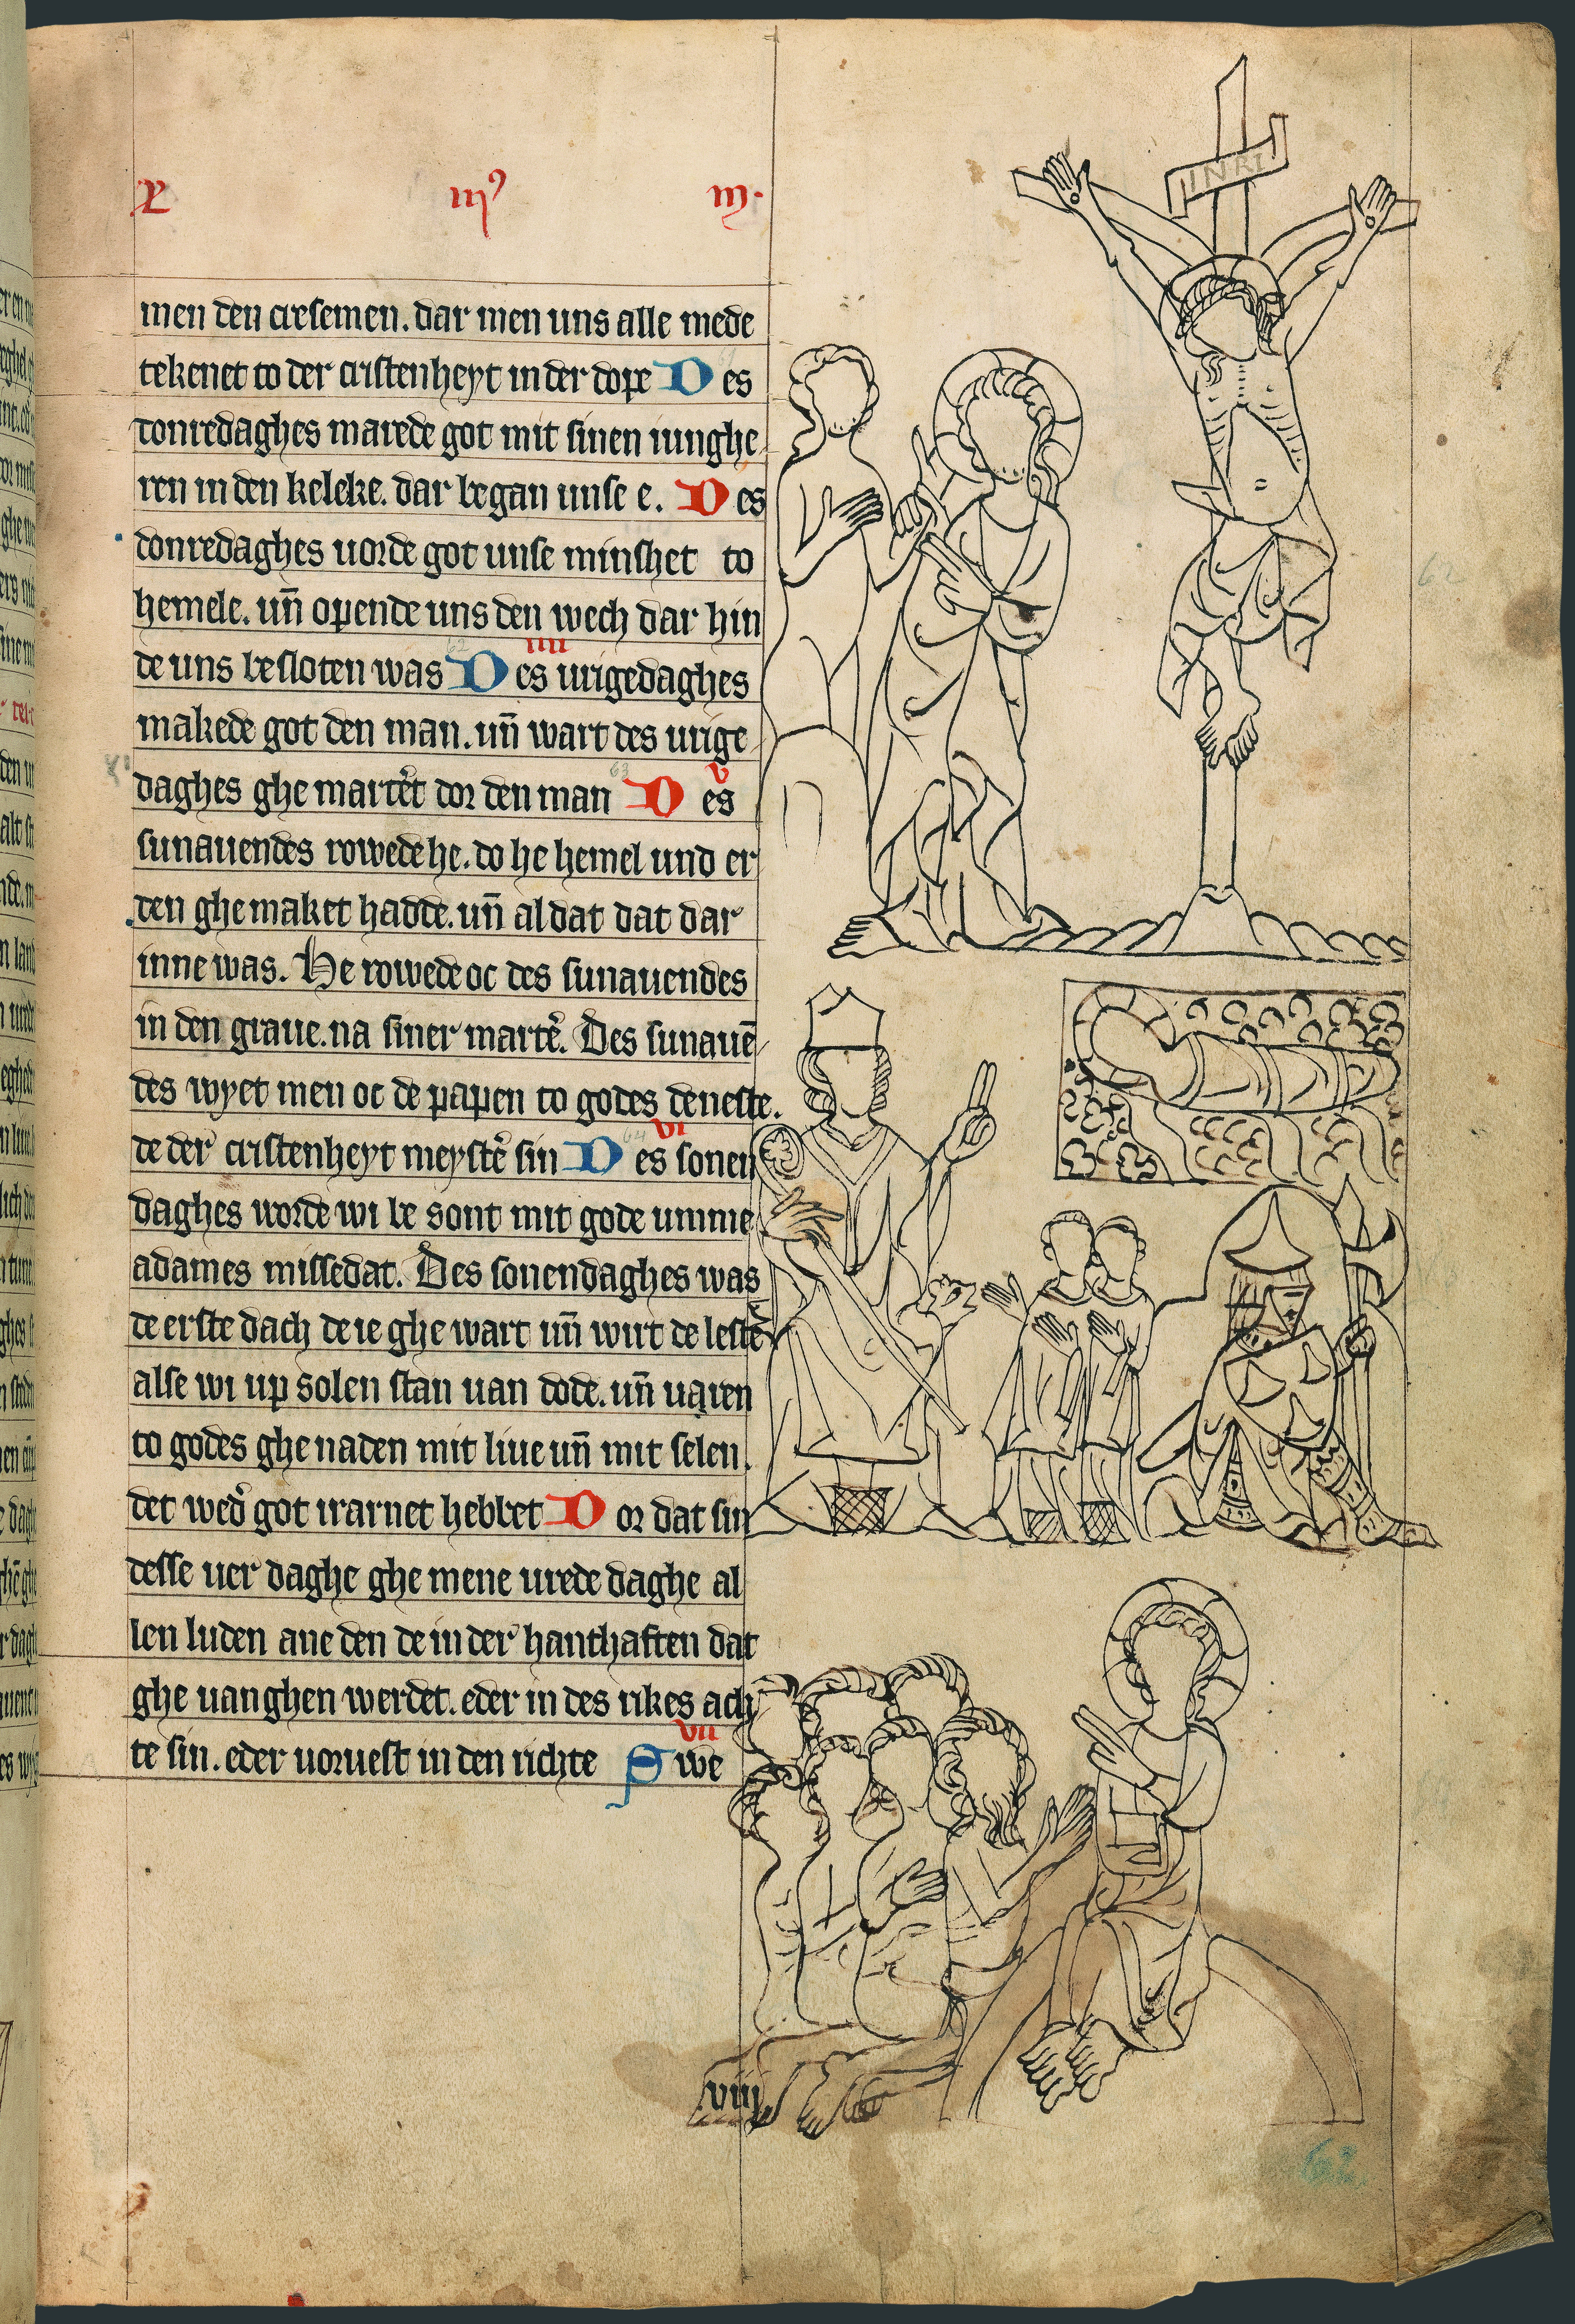 X mꝰ m·
INRI
men den cresemen. dar men uns alle mede
tekenet to der cristenheyt in der dope Des
donredaghes marede got mit sinen iunghe
ren in den keleke. dar began unse e. Des
donredaghes uorde got unse minshet to
hemele. un̄ opende uns den wech dar hin
62 IIII
de uns besloten was Des urigedaghes
makede got den man. un̄ wart des urige
63 V
daghes ghe martͤt dor den man Des
sunauendes rowede he. do he hemel und er
den ghe maket hadde. un̄ al dat dat dar
inne was. He rowede oc des sunauendes
in den graue. na siner martͤ. Des sunauē
des wyet men oc de papen to godes deneste.
64 VI
de der cristenheyt meystͤ sin Des sonen
daghes worde wi be sont mit gode umme
adames missedat. Des sonendaghes was
de erste dach de ie ghe wart un̄ wirt de lestͤ
alse wi up solen stan uan dode. un̄ uaren
to godes ghe naden mit liue un̄ mit selen.
det wedͤ got irarnet hebbet Dor dat sin
desse uer daghe ghe mene urede daghe al
len luden ane den de in der hanthaften dat
ghe uanghen werdet. eder in des rikes ach
VII
te sin. eder uoruest in den richte Swe
VIII
62
62